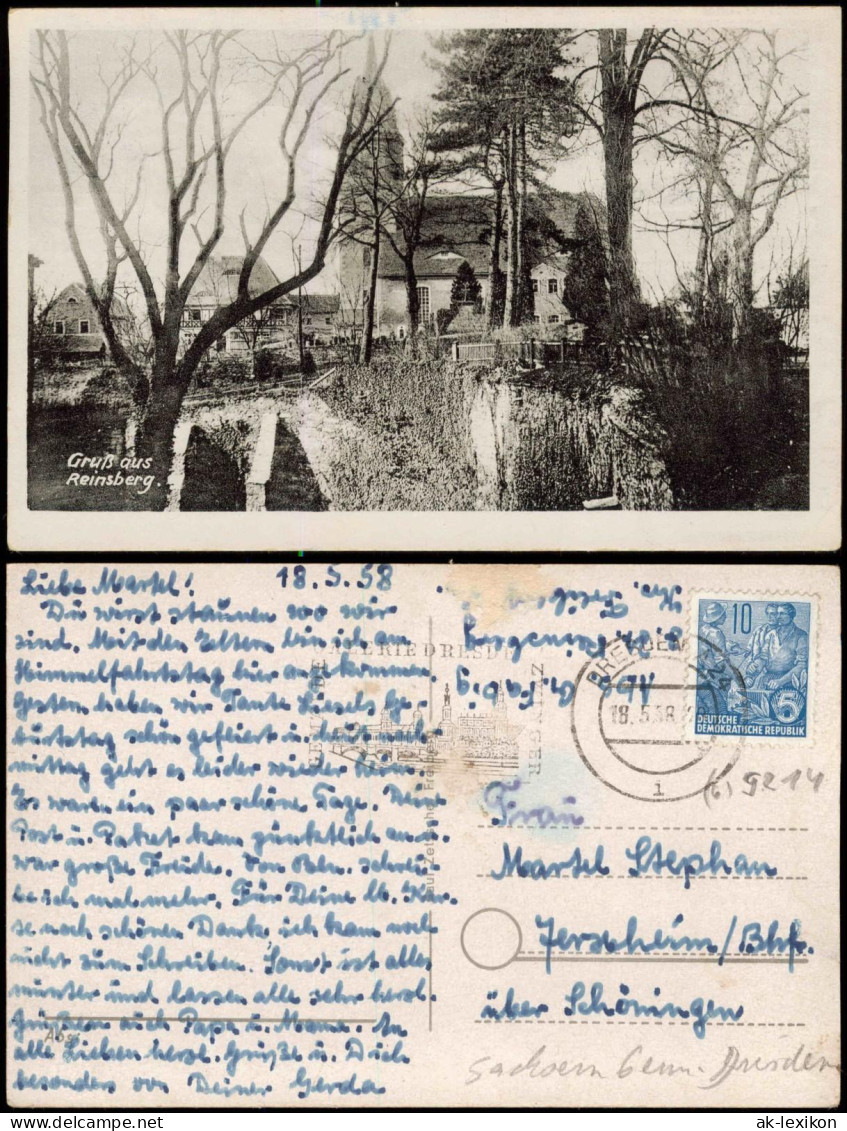 Gruß aus
Reinsberg.
18.5.58
Liebe Martel!
Du wirst staunen wo wir
sind. Mit den Eltern bin ich am
Himmelfahrtstag hier angekommen
Gestern haben wir Tante Liesels Ge-
burtstag schön gefeiert u. heut nach-
mittag geht es leider wieder heim.
Es waren ein paar schöne Tage. Deine
Post u. Paket kam pünktlich an u.
war große Freude. Von Bln. schrei-
be ich mal mehr. Für Deine lb. Kar-
te noch schönen Dank, ich kam noch
nicht zum Schreiben. Sonst ist alles
munter und lassen alle sehr herzl.
grüßen auch Papa u. Mama. An
alle Lieben herzl. Grüße u. Dich
besonders von Deiner Gerda
Abs.
GALERIE DRESDEN
ZWINGER
DRESDEN
18.5.58
i
10
DEUTSCHE
DEMOKRATISCHE REPUBLIK
(b) 9214
Frau
Martel Stephan
Jerxheim/Bhf.
über Schöningen
ak-lexikon